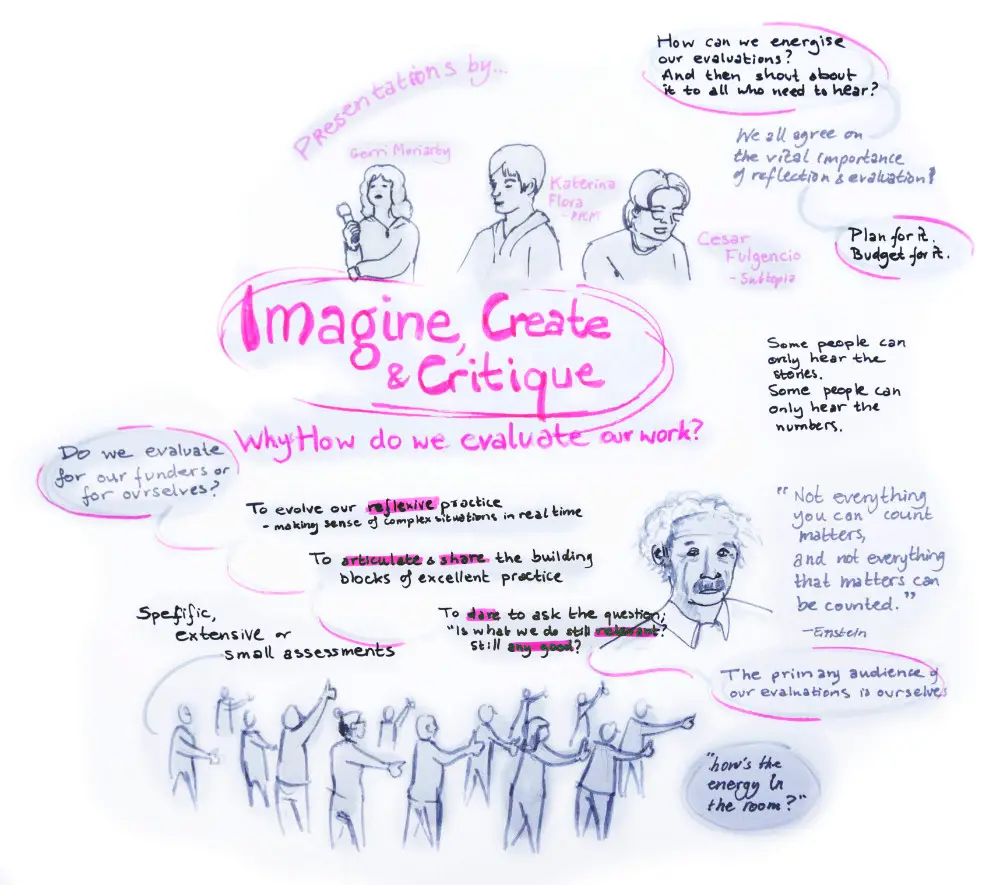 Presentations by...
Gerri Moriarty
Katerina
Flora
Cesar
Fulgencio
- Subtopia
How can we energise
our evaluations?
And then shout about
it to all who need to hear?
We all agree on
the vital importance
of reflection & evaluation!
Plan for it.
Budget for it.
Imagine, Create
& Critique
Why? How do we evaluate our work?
Some people can
only hear the
stories.
Some people can
only hear the
numbers.
Do we evaluate
for our funders or
for ourselves?
To evolve our reflexive practice
- making sense of complex situations in real time
To articulate & share the building
blocks of excellent practice
To dare to ask the question;
"Is what we do still relevant?
Still any good?
"Not everything
you can count
matters,
and not everything
that matters can
be counted."
-Einstein
SpeFific,
extensive or
small assessments
The primary audience of
our evaluations is ourselves
"how's the
energy in
the room?"